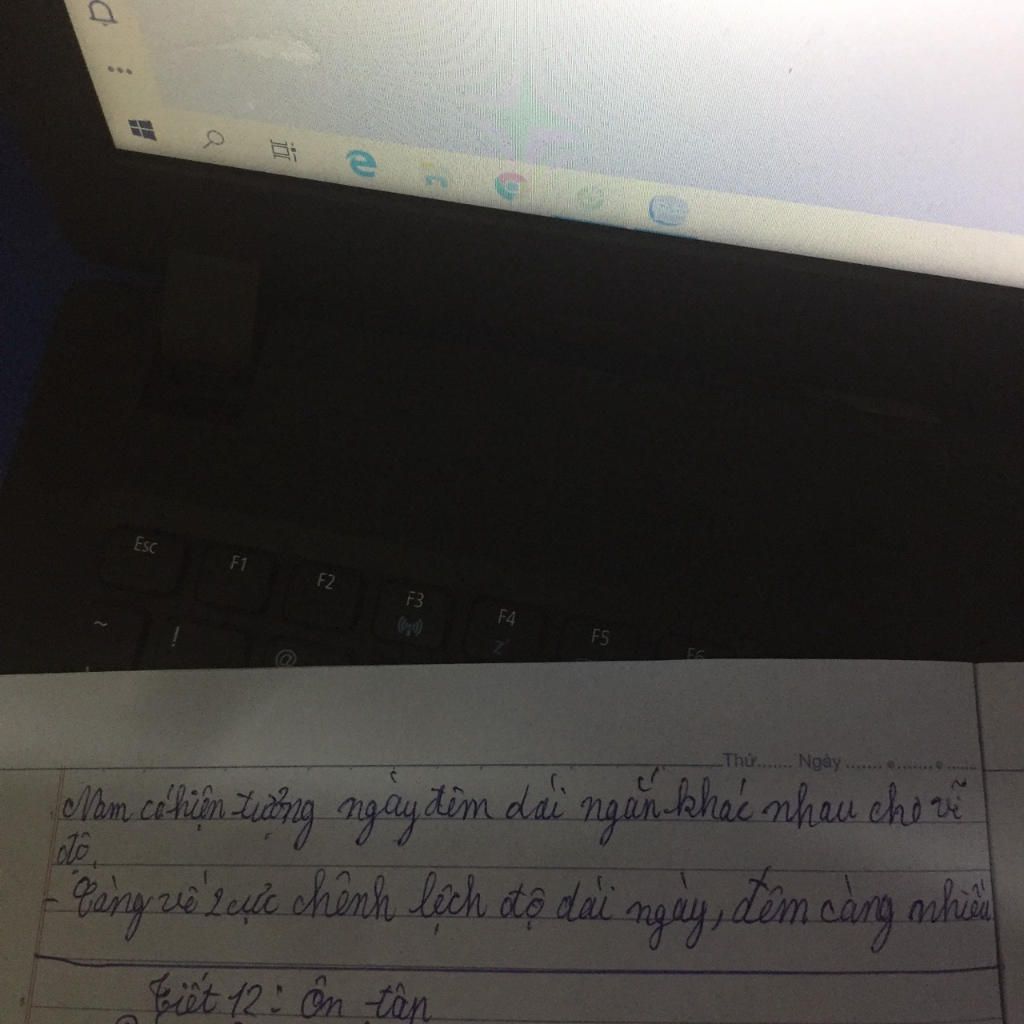 Esc F1 F2 F3 F4 F5 F6
~ ! @
Thứ....... Ngày
Nam có hiện tượng ngày đêm dài ngắn khác nhau cho vĩ
độ.
- Càng về 2 cực chênh lệch độ dài ngày, đêm càng nhiều
Tiết 12: Ôn tập